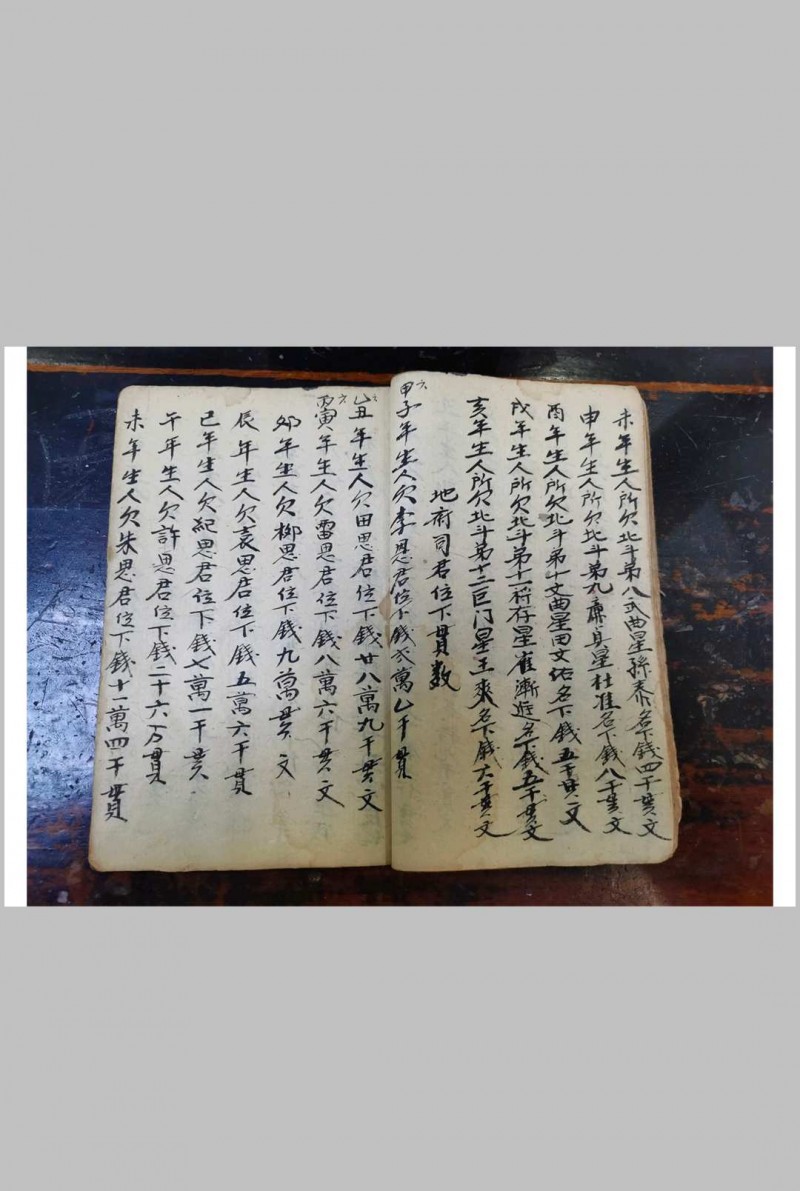 未年生人所欠北斗弟八武曲星孫泰名下錢四千贯文
申年生人所欠北斗弟九廉貞星杜准名下錢八千贯文
酉年生人所欠北斗弟十文曲星田文佑名下錢五千贯文
戌年生人所欠北斗弟十一祿存星崔漸進名下錢五千贯文
亥年生人所欠北斗弟十二巨门星王爽名下錢六千贯文
地府司君位下貫数
甲子年生人欠李思君位下錢弍萬乙千貫
乙丑年生人欠田思君位下錢廿八萬九千贯文
丙寅年生人欠雷思君位下錢八萬六千贯文
卯年生人欠柳思君位下錢九萬贯文
辰年生人欠袁思君位下錢五萬六千貫
巳年生人欠紀思君位下錢七萬一千贯
午年生人欠許思君位下錢二十六万貫
未年生人欠朱思君位下錢十一萬四千貫